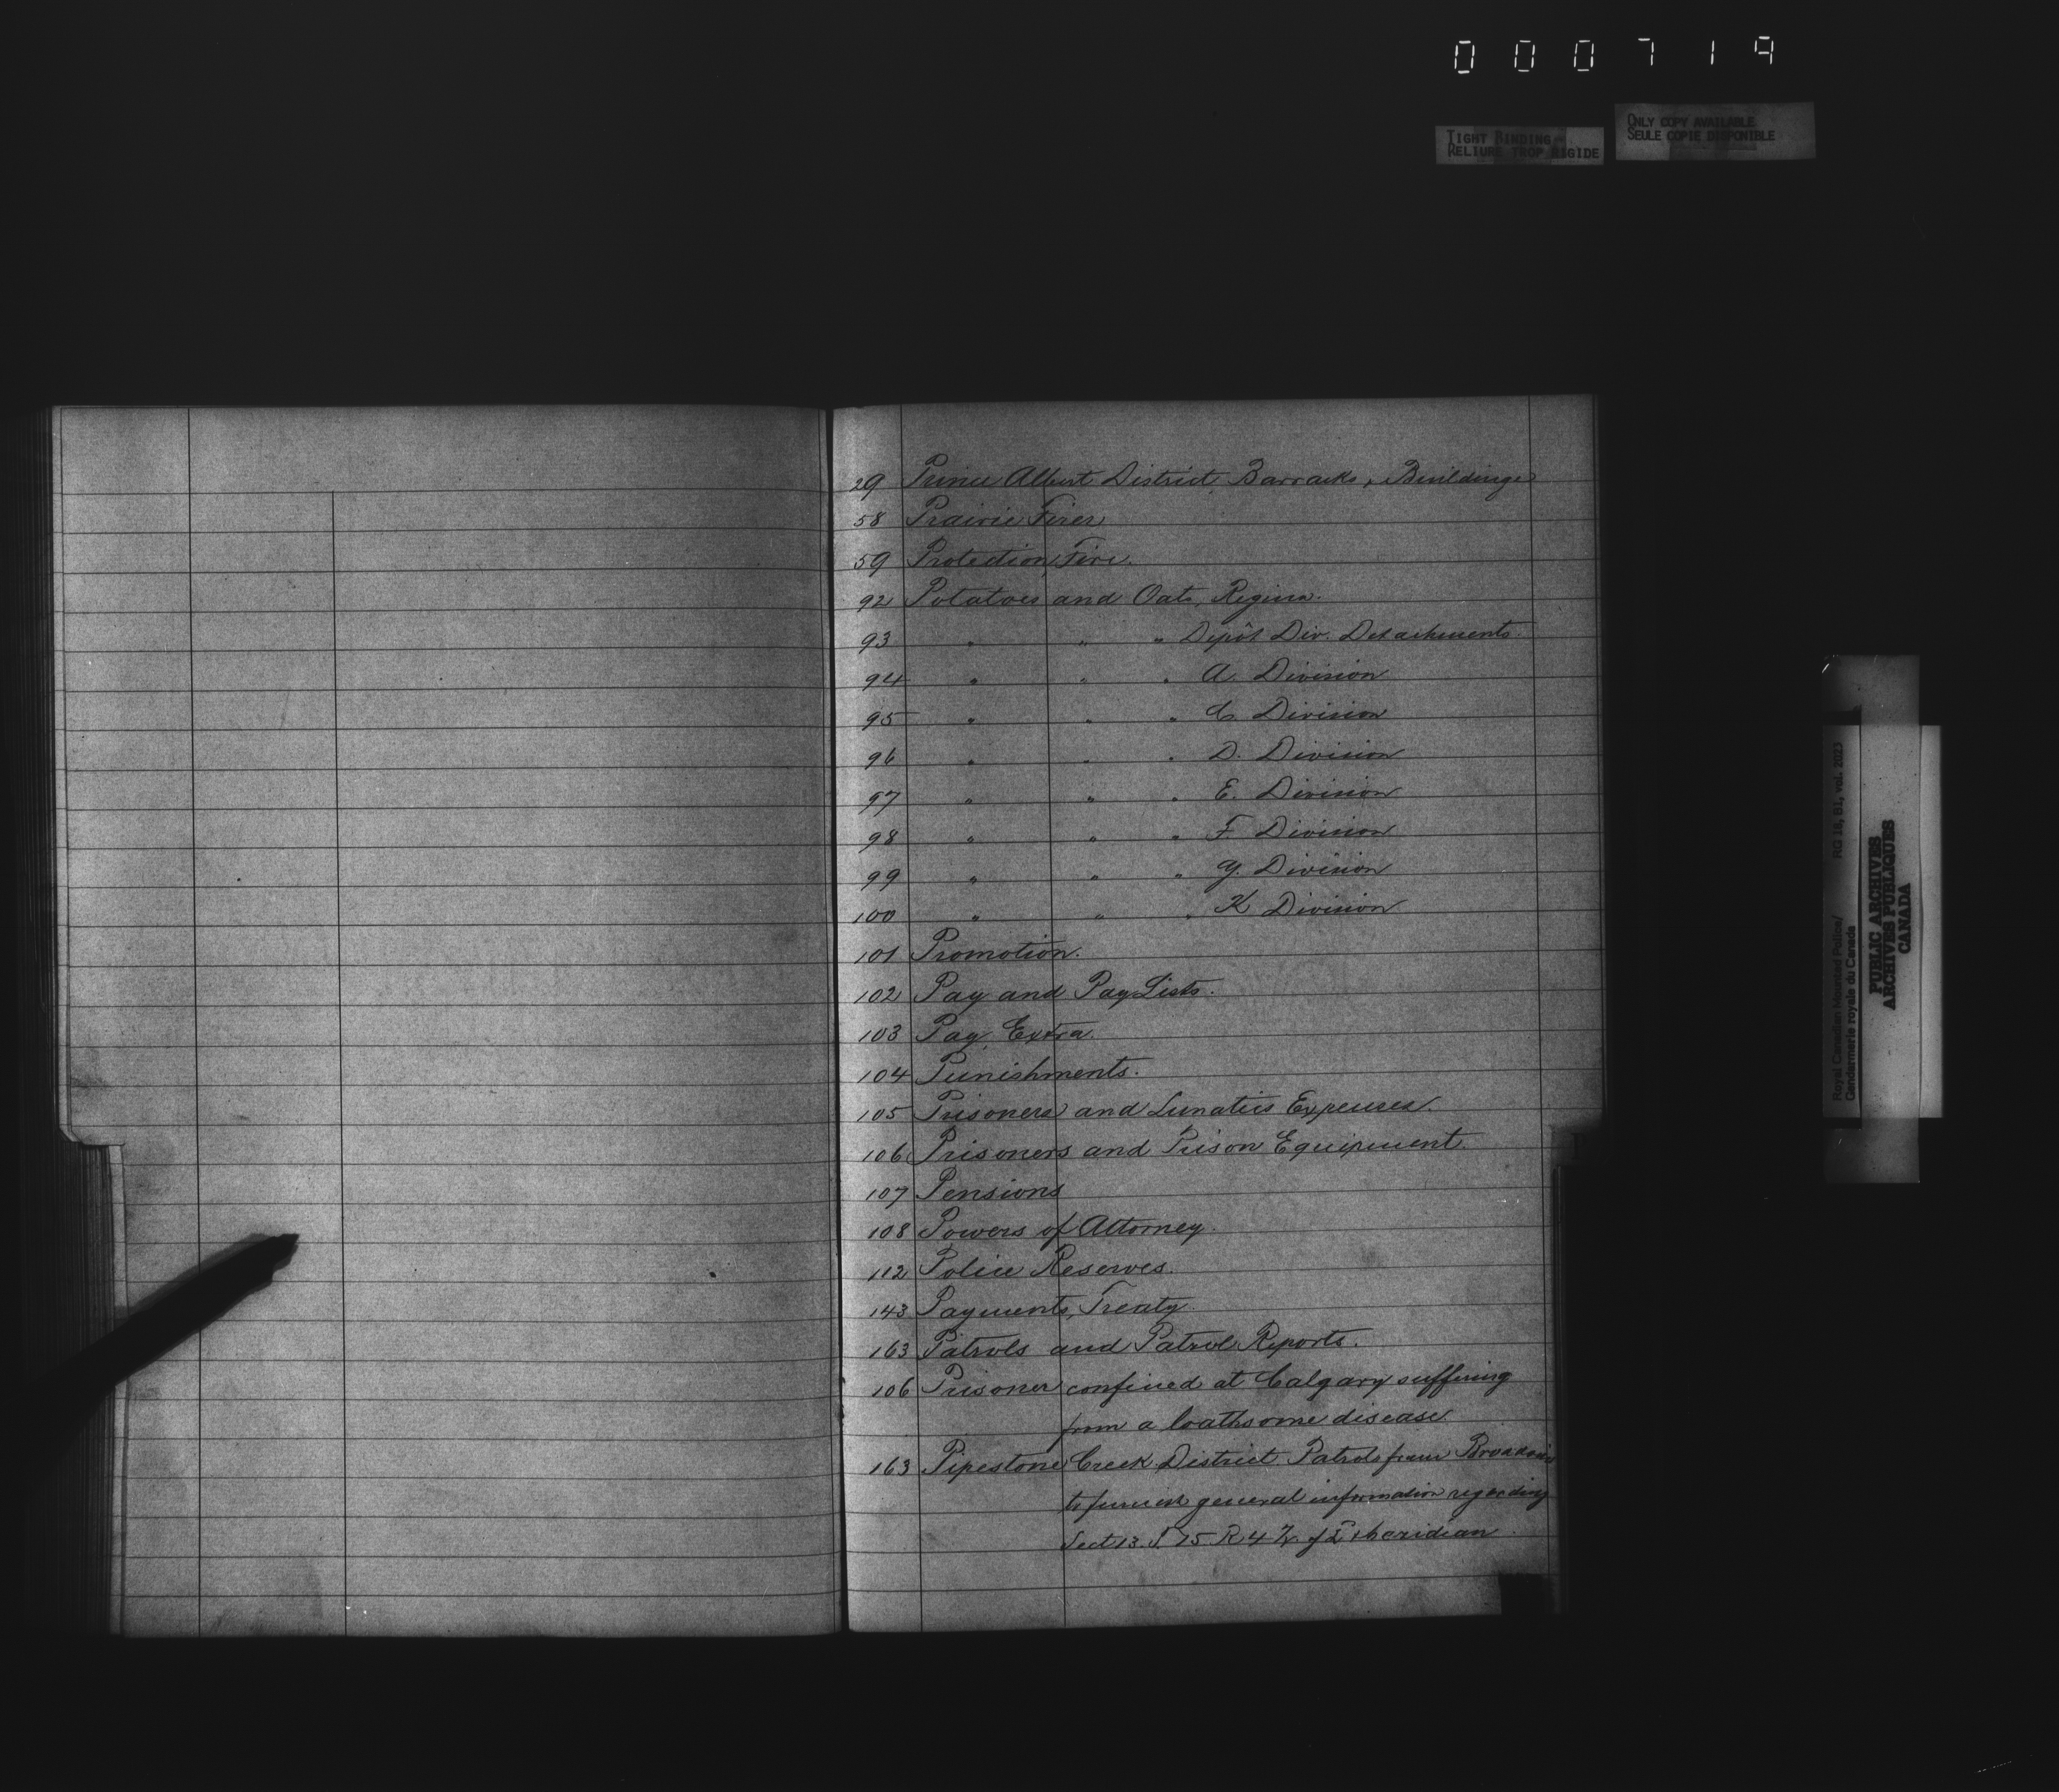 000719
TIGHT BINDING
RELIURE TROP RIGIDE
ONLY COPY AVAILABLE
SEULE COPIE DISPONIBLE
29 Prince Albert District Barracks, Buildings
58 Prairie Fires
59 Protection, Fire.
92 Potatoes and Oats, Regina.
93 " " " Depôt Div. Detachments.
94 " " " A. Division
95 " " " C Division
96 " " " D. Division
97 " " " E. Division
98 " " " F. Division
99 " " " G. Division
100 " " " K Division
101 Promotion.
102 Pay and Pay Lists.
103 Pay, Extra.
104 Punishments.
105 Prisoners and Lunatics Expenses.
106 Prisoners and Prison Equipment.
107 Pensions
108 Powers of Attorney.
112 Police Reserves.
143 Payments, Treaty.
163 Patrols and Patrol Reports.
106 Prisoner confined at Calgary suffering
from a loathsome disease
163 Pipestone Creek District. Patrols from
to furnish general information regarding
Sect 13. T. 15 R 4 of Meridian.
Royal Canadian Mounted Police/
Gendarmerie royale du Canada
RG 18, B1, vol. 2023
PUBLIC ARCHIVES
ARCHIVES PUBLIQUES
CANADA